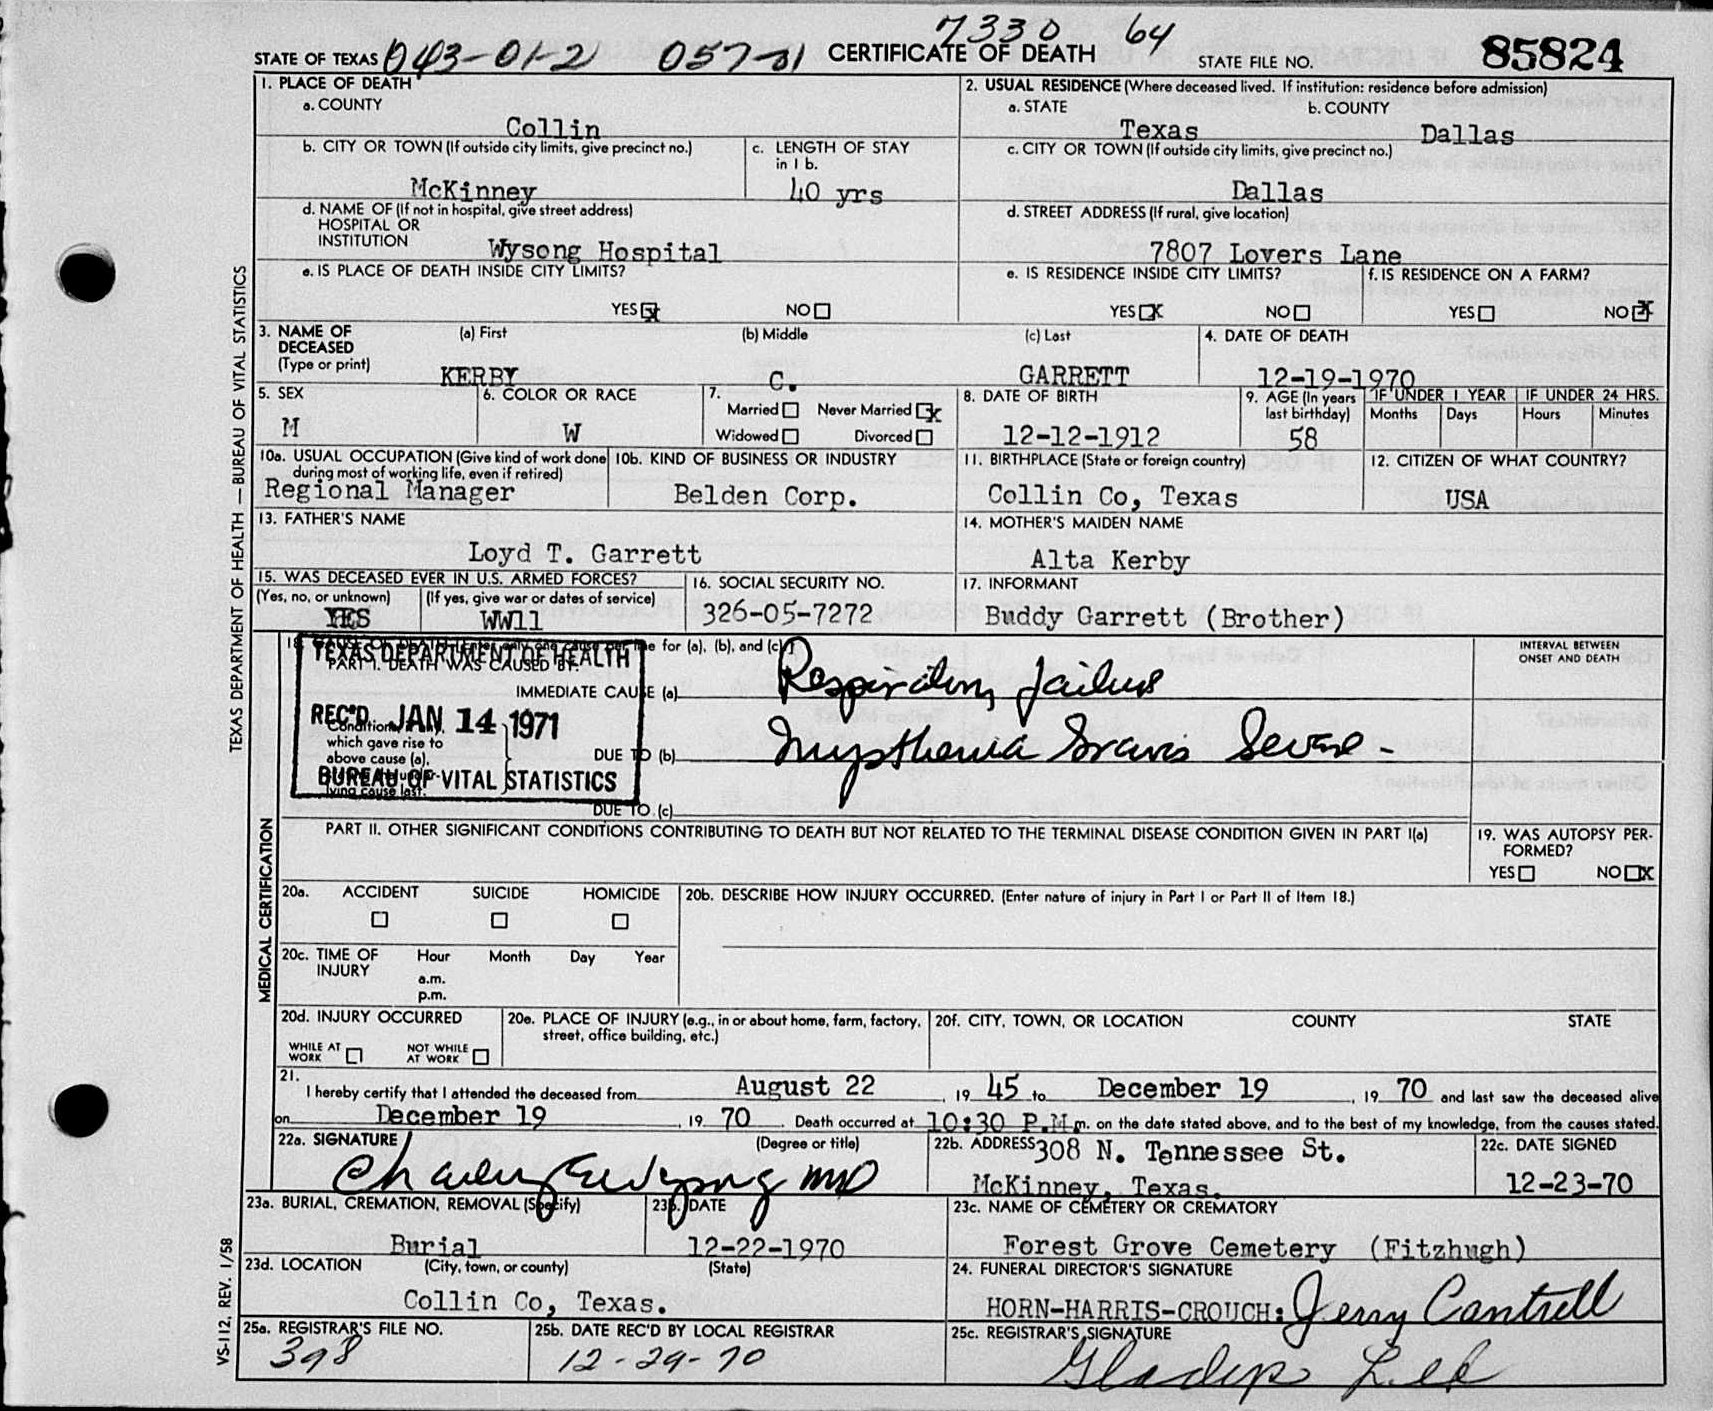 7330 64
STATE OF TEXAS 043-01-2 057-01 CERTIFICATE OF DEATH STATE FILE NO. 85824
1. PLACE OF DEATH
a. COUNTY
Collin
2. USUAL RESIDENCE (Where deceased lived. If institution: residence before admission)
a. STATE b. COUNTY
Texas Dallas
b. CITY OR TOWN (If outside city limits, give precinct no.)
McKinney
c. LENGTH OF STAY
in 1 b.
40 yrs
c. CITY OR TOWN (If outside city limits, give precinct no.)
Dallas
d. NAME OF (If not in hospital, give street address)
HOSPITAL OR
INSTITUTION
Wysong Hospital
d. STREET ADDRESS (If rural, give location)
7807 Lovers Lane
e. IS PLACE OF DEATH INSIDE CITY LIMITS?
YES x NO
e. IS RESIDENCE INSIDE CITY LIMITS?
YES x NO
f. IS RESIDENCE ON A FARM?
YES NO x
3. NAME OF
DECEASED
(Type or print)
(a) First (b) Middle (c) Last
KERBY C. GARRETT
4. DATE OF DEATH
12-19-1970
5. SEX
M
6. COLOR OR RACE
W
7.
Married Never Married x
Widowed Divorced
8. DATE OF BIRTH
12-12-1912
9. AGE (In years
last birthday)
58
IF UNDER 1 YEAR IF UNDER 24 HRS.
Months Days Hours Minutes
10a. USUAL OCCUPATION (Give kind of work done
during most of working life, even if retired)
Regional Manager
10b. KIND OF BUSINESS OR INDUSTRY
Belden Corp.
11. BIRTHPLACE (State or foreign country)
Collin Co, Texas
12. CITIZEN OF WHAT COUNTRY?
USA
13. FATHER'S NAME
Loyd T. Garrett
14. MOTHER'S MAIDEN NAME
Alta Kerby
15. WAS DECEASED EVER IN U.S. ARMED FORCES?
(Yes, no, or unknown) (If yes, give war or dates of service)
YES WWll
16. SOCIAL SECURITY NO.
326-05-7272
17. INFORMANT
Buddy Garrett (Brother)
18. CAUSE OF DEATH (Enter only one cause per line for (a), (b), and (c).)
PART I. DEATH WAS CAUSED BY:
TEXAS DEPARTMENT OF HEALTH
REC'D JAN 14 1971
BUREAU OF VITAL STATISTICS
IMMEDIATE CAUSE (a) Respiratory failure
Conditions, if any,
which gave rise to
above cause (a),
lying cause last.
DUE TO (b) Mysthenia Gravis Severe -
DUE TO (c)
INTERVAL BETWEEN
ONSET AND DEATH
PART II. OTHER SIGNIFICANT CONDITIONS CONTRIBUTING TO DEATH BUT NOT RELATED TO THE TERMINAL DISEASE CONDITION GIVEN IN PART I(a)
19. WAS AUTOPSY PER-
FORMED?
YES NO x
20a. ACCIDENT SUICIDE HOMICIDE
20b. DESCRIBE HOW INJURY OCCURRED. (Enter nature of injury in Part I or Part II of Item 18.)
20c. TIME OF
INJURY
Hour Month Day Year
a.m.
p.m.
20d. INJURY OCCURRED
WHILE AT
WORK
NOT WHILE
AT WORK
20e. PLACE OF INJURY (e.g., in or about home, farm, factory,
street, office building, etc.)
20f. CITY, TOWN, OR LOCATION COUNTY STATE
21.
I hereby certify that I attended the deceased from August 22, 19 45 to December 19, 19 70 and last saw the deceased alive
on December 19, 19 70. Death occurred at 10:30 P.M.m. on the date stated above, and to the best of my knowledge, from the causes stated.
22a. SIGNATURE (Degree or title)
Charles E Wysong MD
22b. ADDRESS 308 N. Tennessee St.
McKinney, Texas.
22c. DATE SIGNED
12-23-70
23a. BURIAL, CREMATION, REMOVAL (Specify)
Burial
23b. DATE
12-22-1970
23c. NAME OF CEMETERY OR CREMATORY
Forest Grove Cemetery (Fitzhugh)
23d. LOCATION (City, town, or county) (State)
Collin Co, Texas.
24. FUNERAL DIRECTOR'S SIGNATURE
HORN-HARRIS-CROUCH: Jerry Cantrell
25a. REGISTRAR'S FILE NO.
398
25b. DATE REC'D BY LOCAL REGISTRAR
12-29-70
25c. REGISTRAR'S SIGNATURE
Gladys Lee
TEXAS DEPARTMENT OF HEALTH — BUREAU OF VITAL STATISTICS
MEDICAL CERTIFICATION
VS-112, REV. 1/58